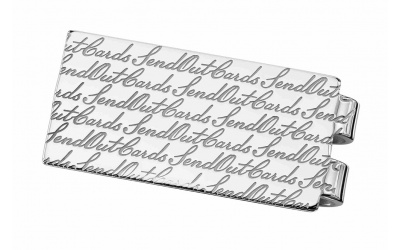 OutCards SendOutCards Send
SendOutCards SendOutCards
OutCards SendOutCards Send
SendOutCards SendOutCards
OutCards SendOutCards Send